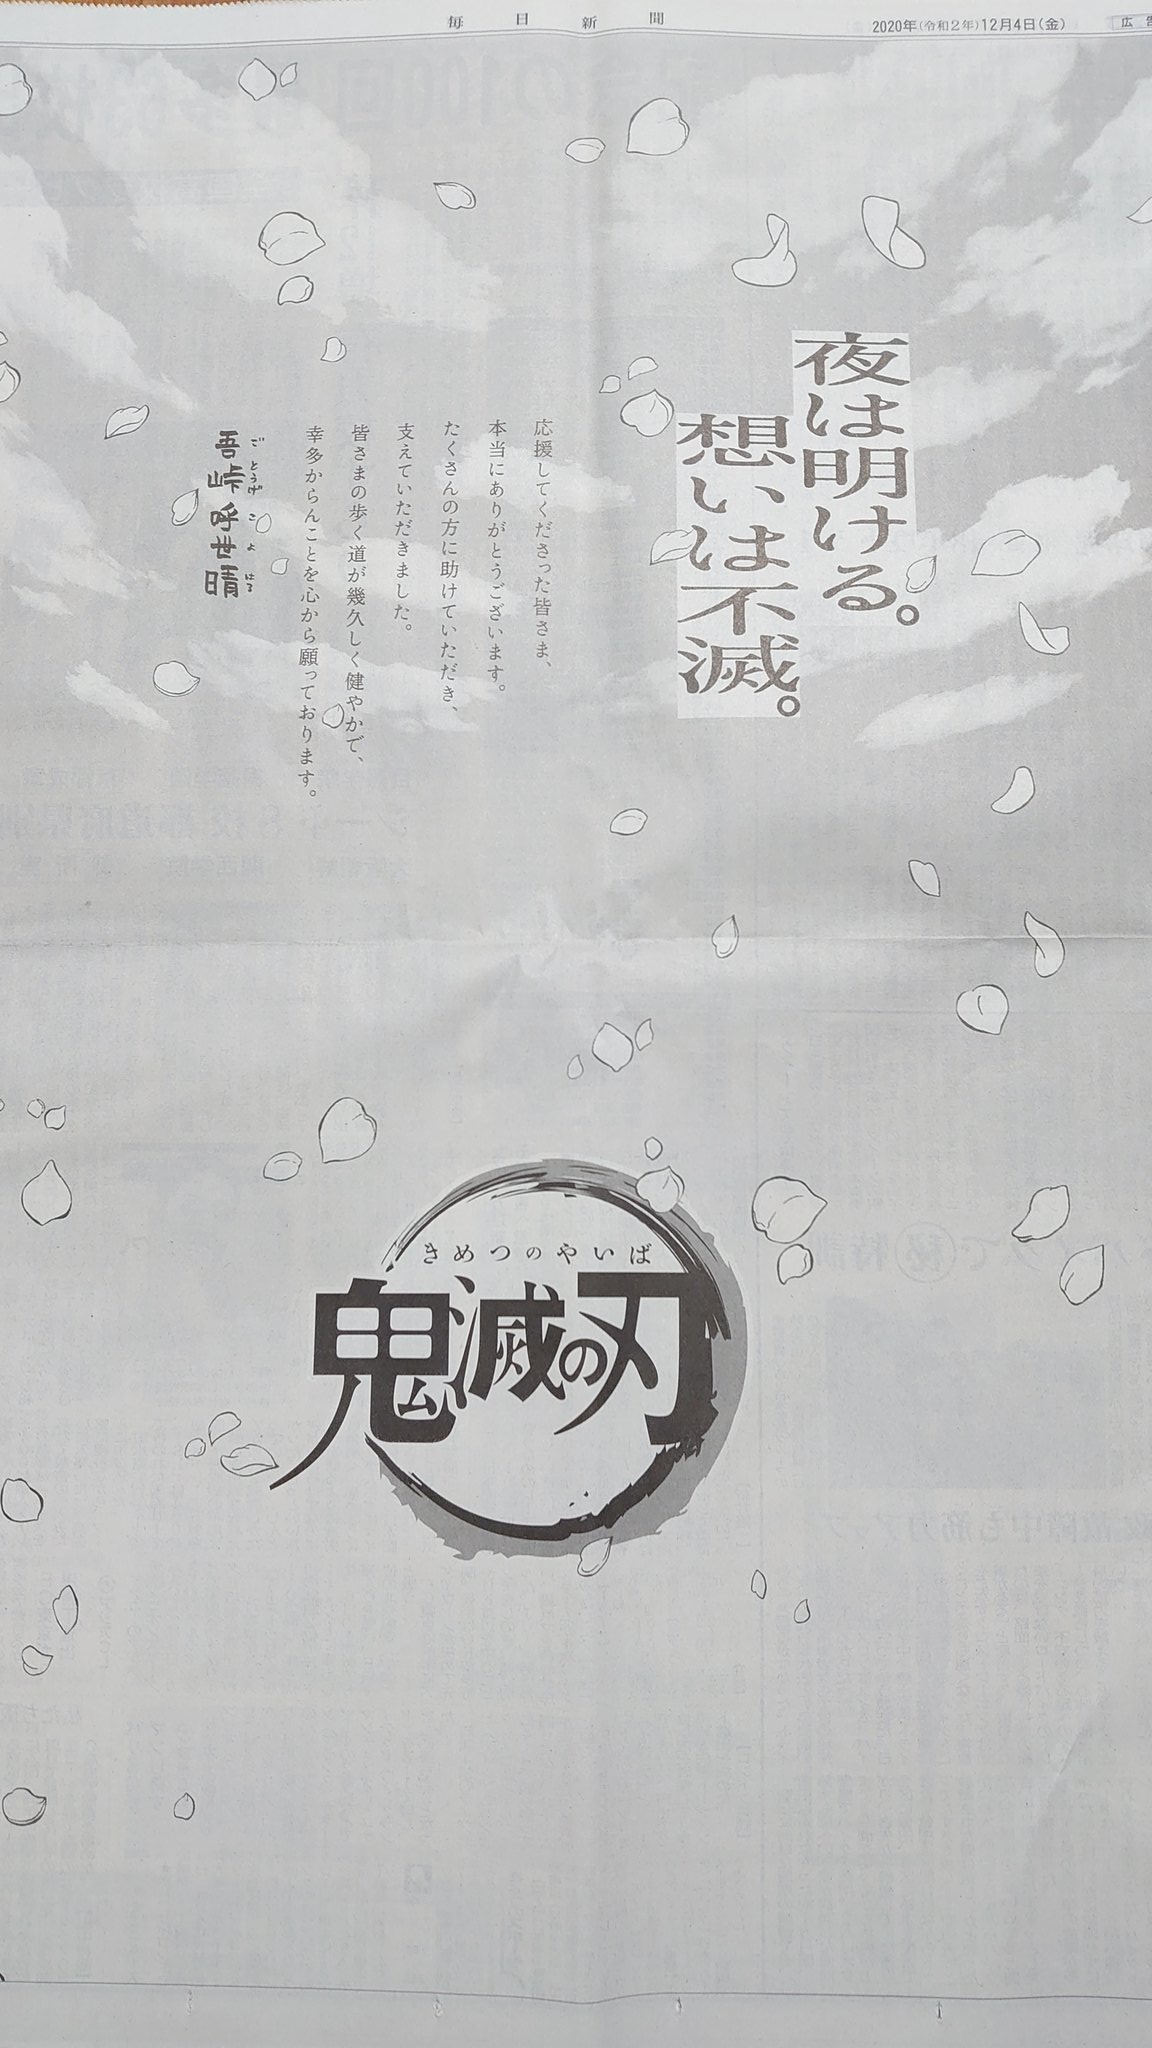 毎日新聞
2020年(令和2年)12月4日(金)
広告
夜は明ける。
想いは不滅。
応援してくださった皆さま、
本当にありがとうございます。
たくさんの方に助けていただき、
支えていただきました。
皆さまの歩く道が幾久しく健やかで、
幸多からんことを心から願っております。
吾峠呼世晴
ごとうげこよはる
きめつのやいば
鬼滅の刃